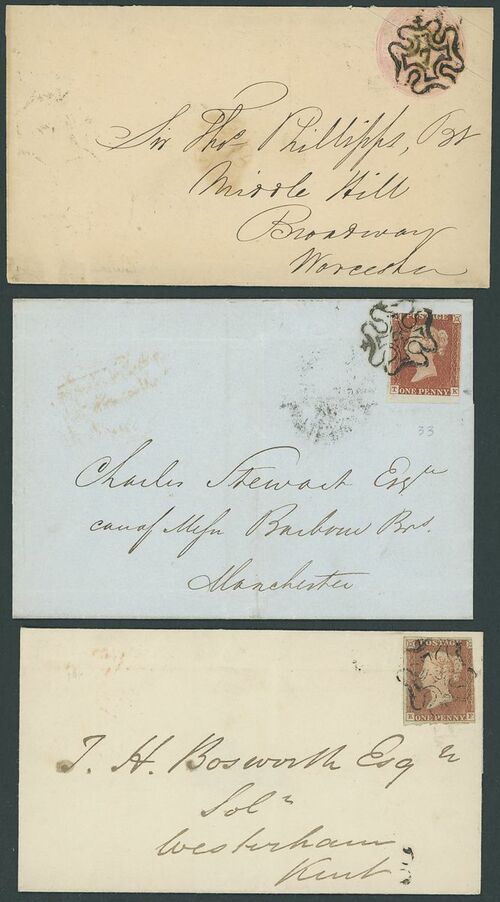 Sir Thos Phillipps, Bt
Middle Hill
Broadway
Worcester
POSTAGE
T K
ONE PENNY
33
Charles Stewart Esqre
care of Messrs Barbour Bros.
Manchester
POSTAGE
ONE PENNY
J. H. Bosworth Esqre
Solr
Westerham
Kent